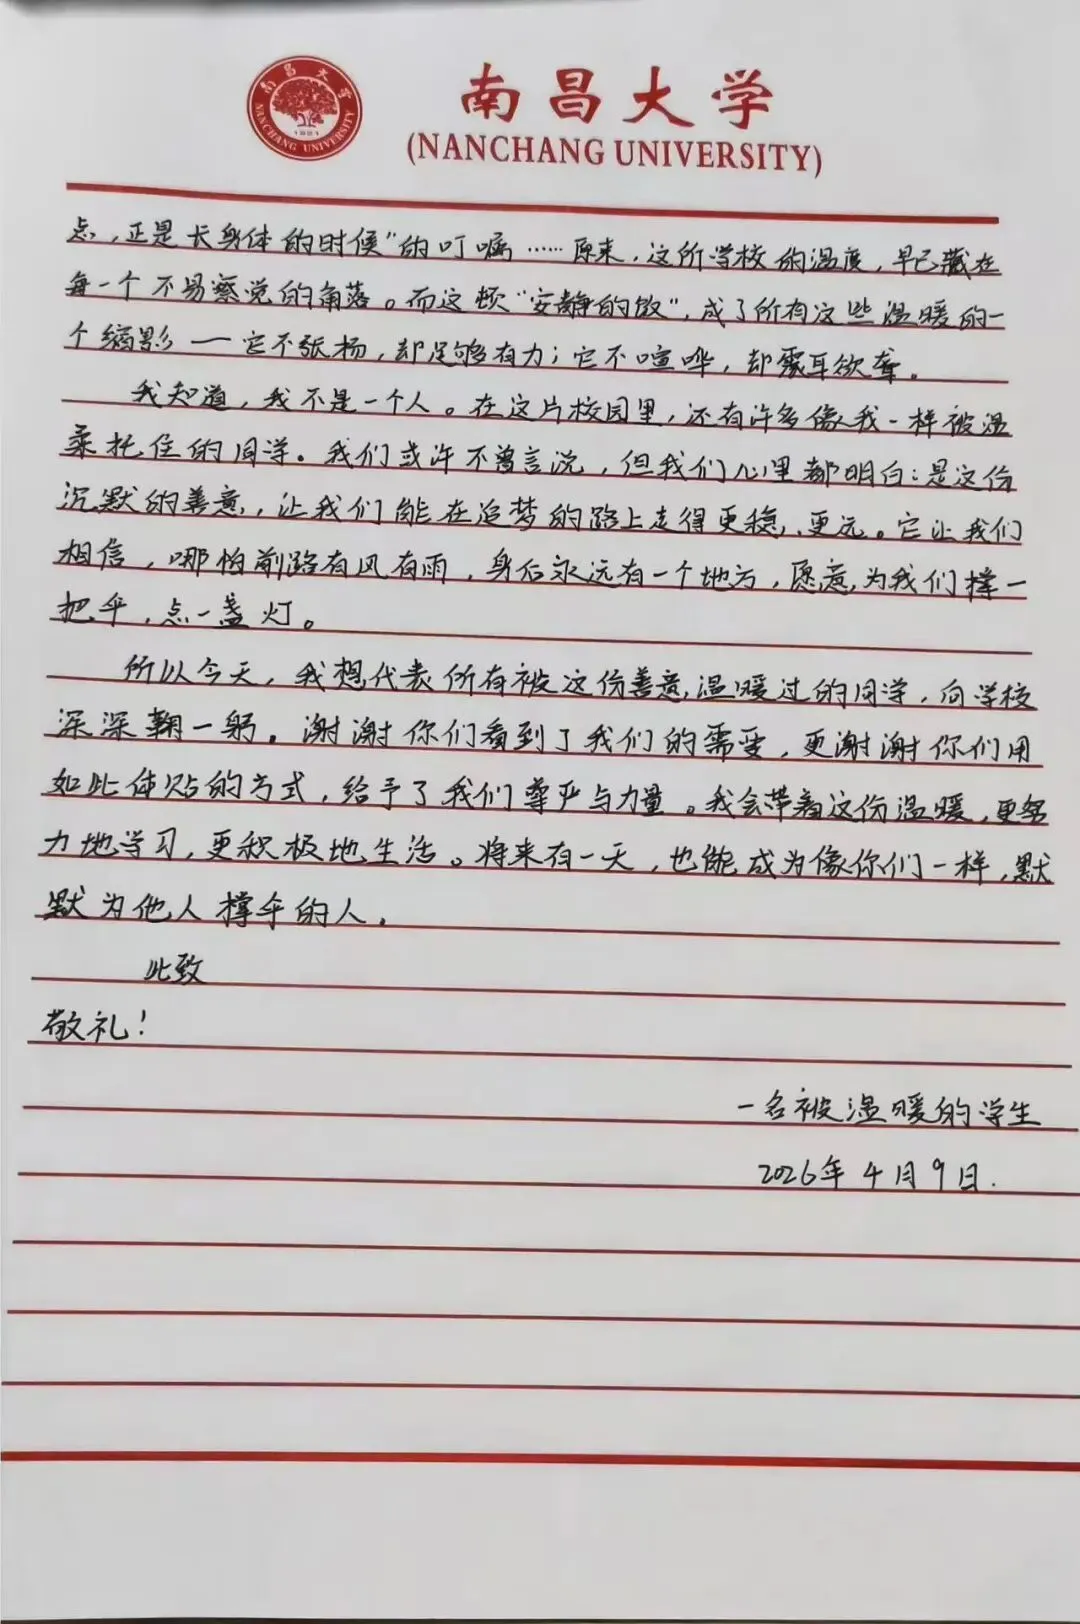 南昌大学
NANCHANG UNIVERSITY
1921
南昌大学
(NANCHANG UNIVERSITY)
点，正是长身体的时候”的叮嘱……原来，这所学校的温度，早已藏在
每一个不易察觉的角落。而这顿“安静的饭”，成了所有这些温暖的一
个缩影——它不张扬，却足够有力；它不喧哗，却震耳欲聋。
我知道，我不是一个人。在这片校园里，还有许多像我一样被温
柔托住的同学。我们或许不曾言说，但我们心里都明白：是这份
沉默的善意，让我们能在追梦的路上走得更稳、更远。它让我们
相信，哪怕前路有风有雨，身后永远有一个地方，愿意为我们撑一
把伞，点一盏灯。
所以今天，我想代表所有被这份善意温暖过的同学，向学校
深深鞠一躬。谢谢你们看到了我们的需要，更谢谢你们用
如此体贴的方式，给予了我们尊严与力量。我会带着这份温暖，更努
力地学习，更积极地生活。将来有一天，也能成为像你们一样，默
默为他人撑伞的人。
此致
敬礼！
一名被温暖的学生
2026年4月9日.